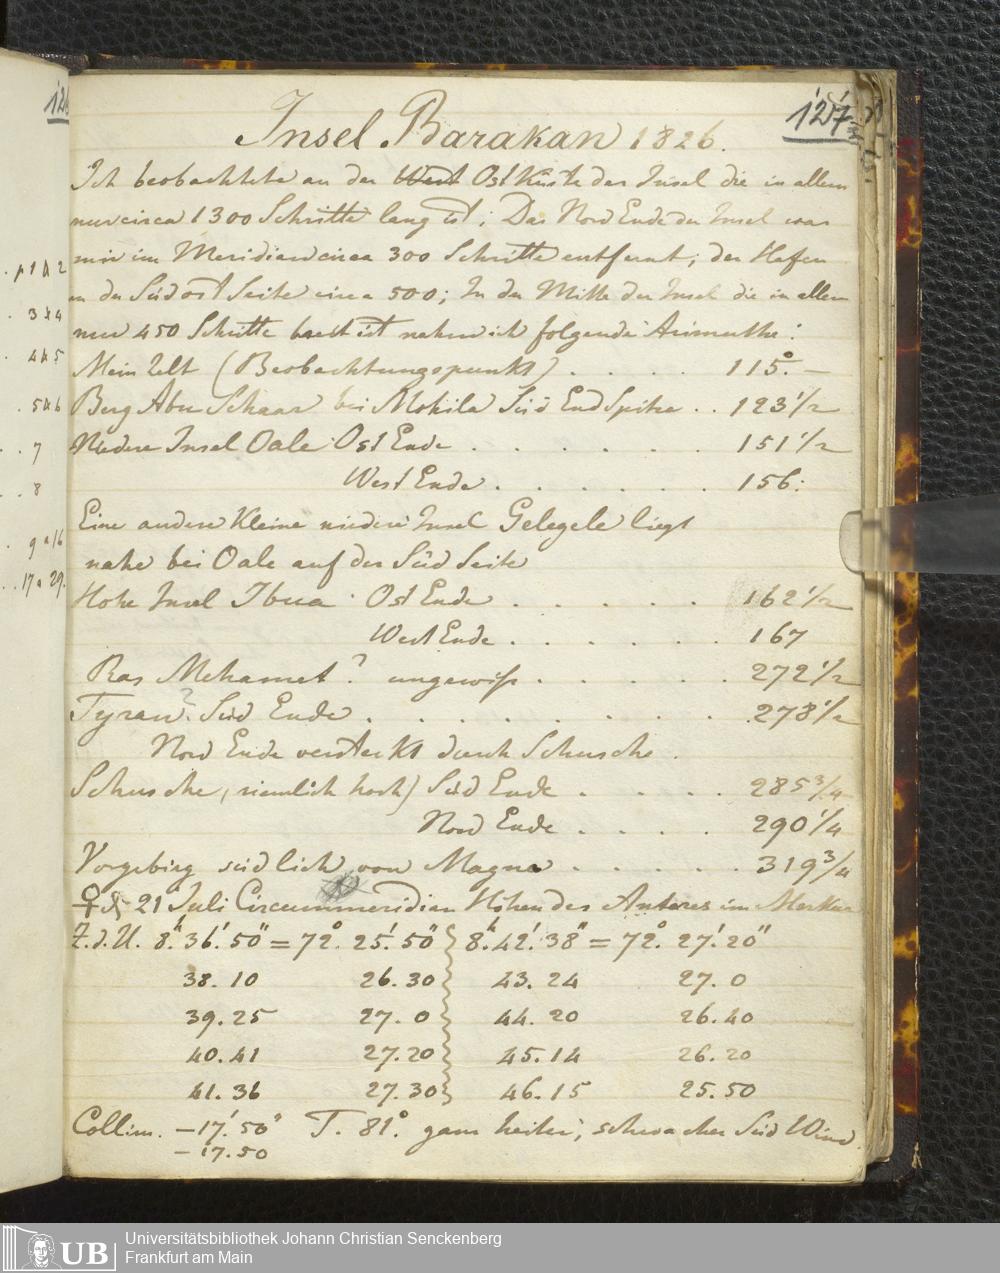 126
127
Insel Barakan 1826.
Ich beobachtete an der West Ost Küste der Insel die in allem
nur circa 1300 Schritte lang ist; Das Nord Ende der Insel war
mir im Meridian circa 300 Schritte entfernt; der Hafen
an der Südost Seite circa 500; In der Mitte der Insel die in allem
nur 450 Schritte breit ist nahm ich folgende Azimuthe:
Mein Zelt (Beobachtungspunkt) . . . . 115°. —
Berg Abu Schaar bei Mokila Süd End Spitze . . 123 1/2
Niedere Insel Oale Ost Ende . . . . . . 151 1/2
West Ende . . . . . . 156.
Eine andere kleine niedere Insel Gelegele liegt
nahe bei Oale auf der Süd Seite
Hohe Insel Ibua Ost Ende . . . . . 162 1/2
West Ende . . . . . . 167
Ras Mehamet? ungewiss . . . . . 272 1/2
Tyran? Süd Ende . . . . . . . . 278 1/2
Nord Ende versteckt durch Schusche.
Schusche (ziemlich hoch) Süd Ende . . . . 285 3/4
Nord Ende . . . . 290 1/4
Vorgebirg südlich von Magna . . . . . . 319 3/4
♀ d. 21 Juli Circummeridian Höhen des Antares im Merkur
Z.d.U. 8h. 36'. 50" = 72°. 25'. 50" 8h. 42'. 38" = 72°. 27'. 20"
38. 10 26. 30 43. 24 27. 0
39. 25 27. 0 44. 20 26. 40
40. 41 27. 20 45. 14 26. 20
41. 36 27. 30 46. 15 25. 50
Collim. —17'. 50" T. 81°. ganz heiter; schwacher Süd Wind
—17. 50
p 1 à 2
3 à 4
4 à 5
5 à 6
7
8
9 a 16
17 a 29.
UB
Universitätsbibliothek Johann Christian Senckenberg
Frankfurt am Main